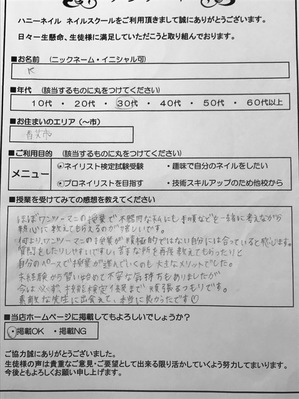 ハニーネイル ネイルスクールをご利用頂きまして誠にありがとうございます。
日々一生懸命、生徒様に満足していただこうと取り組んでおります。
■お名前 (ニックネーム・イニシャル可)
K
■年代 (該当するものに丸をつけてください)
10代 ・ 20代 ・ 30代 ・ 40代 ・ 50代 ・ 60代以上
■お住まいのエリア (～市)
■ご利用目的 (該当するものに丸をつけてください)
メニュー
・ネイリスト検定試験受験 ・趣味で自分のネイルをしたい
・プロネイリストを目指す ・技術スキルアップのため他校から
■授業を受けてみての感想を教えてください
ほぼマンツーマンの授業で不器用な私にも手順などを一緒に考えながら
熱心に教えてもらえるのが嬉しいです。
何よりマンツーマンの授業が
質問をしたり
自分のペースで授業が進んでいくのも大きなメリットでした。
未経験から習い始めて不安な気持もありましたが
今は
素敵な先生に出会えて、本当に良かったです♡
■当店ホームページに掲載してもよろしいでしょうか?
掲載OK ・ 掲載NG
ご協力誠にありがとうございました。
生徒様の声は貴重なご意見・ご要望として出来る限り活かしていくよう努力してまいります。
今後ともよろしくお願い申し上げます。